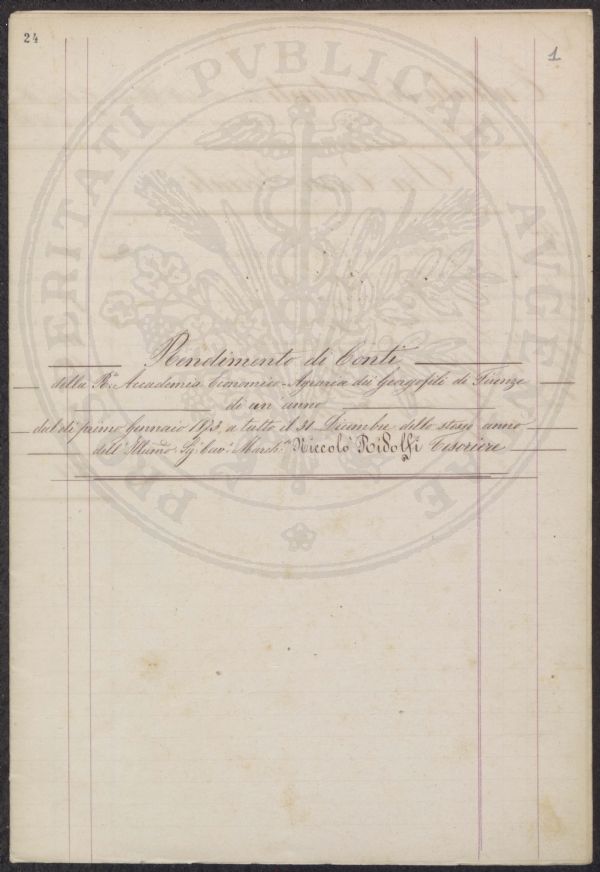 24
1
PROSPERITATI PVBLICAE AVGENDAE
Rendimento di Conti
della R.a Accademia Economico-Agraria dei Georgofili di Firenze
di un anno
dal dì primo Gennaio 1873, a tutto il 31 Dicembre dello stesso anno
dell' Illumo Sig. Cav. March.e Niccolò Ridolfi Tesoriere